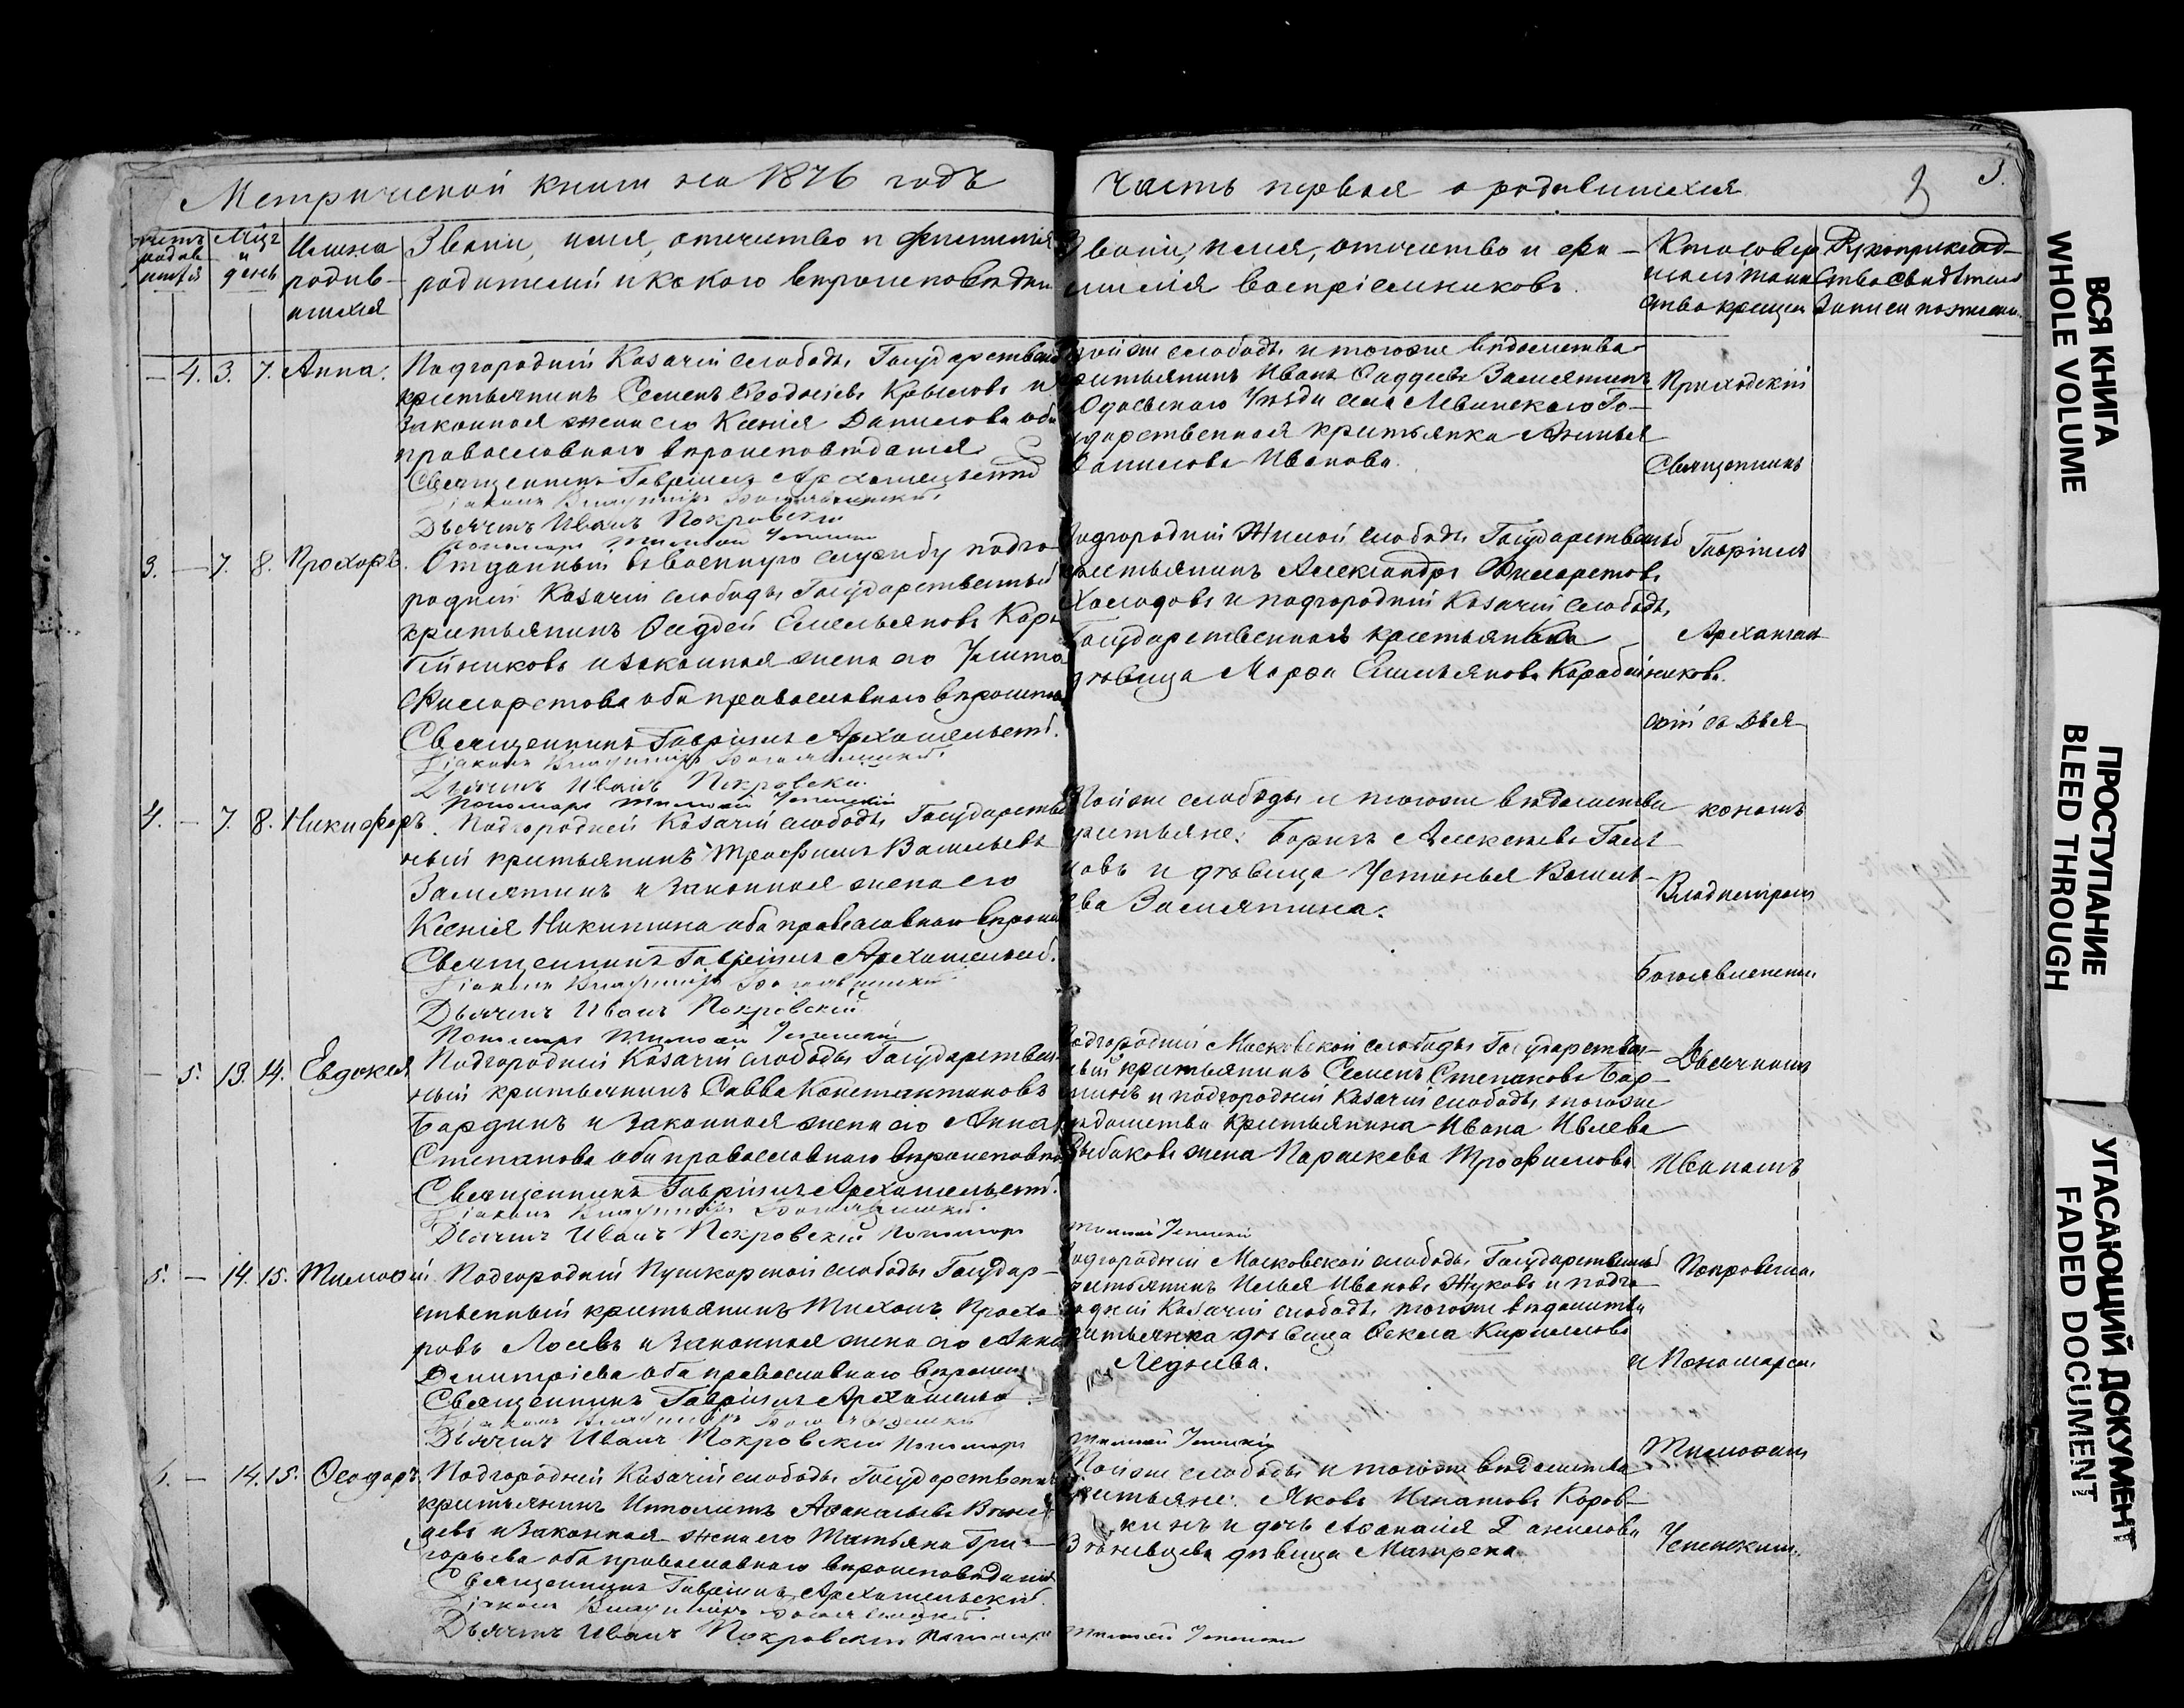 Метрической книги на 1876 годъ
Часть первая о родившихся
3.
Мѣц.
и
день
Имена
родив-
шихся
Званіе, имя, отчество и фамилія
родителей и какого вѣроисповѣданія
Званіе, имя, отчество и фа-
милія воспріемниковъ.
Кто совер
шалъ таин
ство крещен
Рукоприклад-
ство свидѣтелей
записи по желан.
— 4. 3. 7. Анна.
Подгородней Казачьей слободы Государственный
крестьянинъ Семенъ Ѳеодосіевъ Крыловъ и
законная жена его Ксенія Данилова оба
православнаго вѣроисповѣданія
Священникъ Гавріилъ Архангельскій
Діаконъ Владиміръ Богоявленскій
Дьячекъ Иванъ Покровскій
Пономарь Тимоѳей Успенскій
Тойже слободы и тогоже вѣдомства
крестьянинъ Иванъ Ѳаддеевъ Замятинъ
Одоевскаго Уѣзда села Левинскаго Го-
сударственная крестьянка
Данилова Иванова.
3. — 7. 8. Прохоръ.
Отданный въ военную службу подго-
родней Казачьей слободы Государственный
крестьянинъ Ѳаддей Емельяновъ Кара-
бейниковъ и законная жена его Улита
Филаретова оба православнаго вѣроиспов
Священникъ Гавріилъ Архангельскій.
Діаконъ Владиміръ Богоявленскій.
Дьячекъ Иванъ Покровскій.
Пономарь Тимоѳей Успенскій
Подгородней слободы Государственный
крестьянинъ Александръ Филаретовъ
Холодовъ и подгородней Казачьей слободы
Государственная крестьянка
дѣвица Марѳа Емельянова Карабейникова.
4. — 7. 8. Никифоръ.
Подгородней Казачьей слободы Государствен
ный крестьянинъ Трофимъ Васильевъ
Замятинъ и законная жена его
Ксенія Никитина оба православнаго вѣроисп
Священникъ Гавріилъ Архангельскій.
Діаконъ Владиміръ Богоявленскій
Дьячекъ Иванъ Покровскій
Пономарь Тимоѳей Успенскій
Тойже слободы и тогоже вѣдомства
крестьяне: Борисъ Алексѣевъ
и дѣвица Устинья Василь-
ева Замятина.
— 5. 13. 14. Евдокія
Подгородней Казачьей слободы Государствен-
ный крестьянинъ Савва Константиновъ
Бардинъ и законная жена его Анна
Степанова оба православнаго вѣроисповѣд
Священникъ Гавріилъ Архангельскій.
Діаконъ Владиміръ Богоявленскій.
Дьячекъ Иванъ Покровскій Пономарь Тимоѳей Успенскій
Подгородней Московской слободы Государствен-
ный крестьянинъ Семенъ Степановъ Бар-
и подгородней Казачьей слободы тогоже
вѣдомства крестьянина Ивана Ивлева
Рыбакова жена Параскева Трофимова.
5. — 14. 15. Тимоѳей
Подгородней Пушкарской слободы Государ-
ственный крестьянинъ Тихонъ Прохо-
ровъ Лосевъ и законная жена его Анна
Димитріева оба православнаго вѣроисп.
Священникъ Гавріилъ Архангельск
Діаконъ Владиміръ Богоявленскій
Дьячекъ Иванъ Покровскій Пономарь Тимоѳей Успенскій
Подгородней Московской слободы Государственный
крестьянинъ Илья Ивановъ Жуковъ и подго-
родней Казачьей слободы тогоже вѣдомства
крестьянка дѣвица Ѳекла Кириллова
Леднева.
— 14. 15. Ѳеодоръ.
Подгородней Казачьей слободы Государственный
крестьянинъ Ипполитъ Аѳанасьевъ
и законная жена его Татьяна Гри-
горьева оба православнаго вѣроисповѣданія
Священникъ Гавріилъ Архангельскій.
Діаконъ Владиміръ Богоявленскій.
Дьячекъ Иванъ Покровскій Пономарь Тимоѳей Успенскій
Тойже слободы и тогоже вѣдомства
крестьяне: Яковъ Игнатовъ Коров-
кинъ и дочь Аѳанасія Данилова
дѣвица
Приходскій
Священникъ
Гавріилъ
Архангель
скій съ Діа
кономъ
Владиміромъ
Богоявленски
Дьячкомъ
Иваномъ
Покровски
и Пономаремъ
Тимоѳеемъ
Успенскимъ.
ВСЯ КНИГА
WHOLE VOLUME
ПРОСТУПАНИЕ
BLEED THROUGH
УГАСАЮЩИЙ ДОКУМЕНТ
FADED DOCUMENT